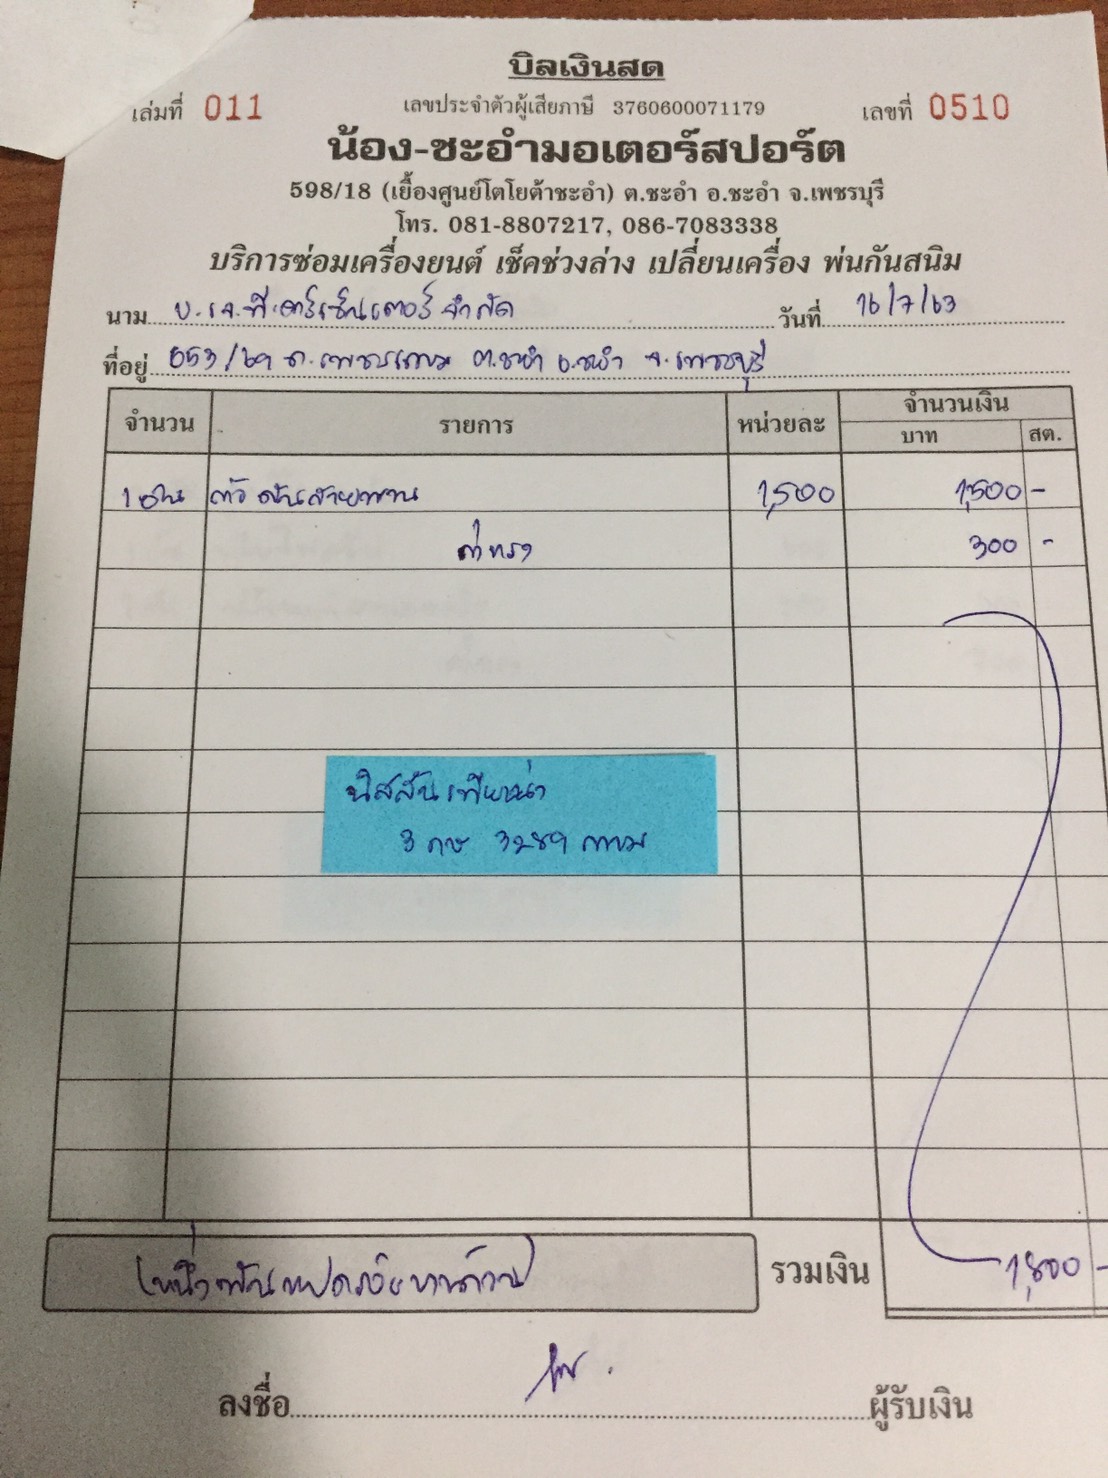 บิลเงินสด
เล่มที่ 011 เลขประจำตัวผู้เสียภาษี 3760600071179 เลขที่ 0510
น้อง-ชะอำมอเตอร์สปอร์ต
598/18 (เยื้องศูนย์โตโยต้าชะอำ) ต.ชะอำ อ.ชะอำ จ.เพชรบุรี
โทร. 081-8807217, 086-7083338
บริการซ่อมเครื่องยนต์ เช็คช่วงล่าง เปลี่ยนเครื่อง พ่นกันสนิม
นาม บ. เจ.ที.คาร์เซ็นเตอร์ จำกัด วันที่ 16/7/63
ที่อยู่ 853/69 ถ.เพชรเกษม ต.ชะอำ อ.ชะอำ จ.เพชรบุรี
จำนวน รายการ หน่วยละ จำนวนเงิน
บาท สต.
1 อัน ตัวดันสายพาน 1,500 1,500 -
ค่าแรง 300 -
นิสสัน เทียน่า
3 กษ 3289 กทม
(หนึ่งพันแปดร้อยบาทถ้วน) รวมเงิน 1,800 -
ลงชื่อ ผู้รับเงิน